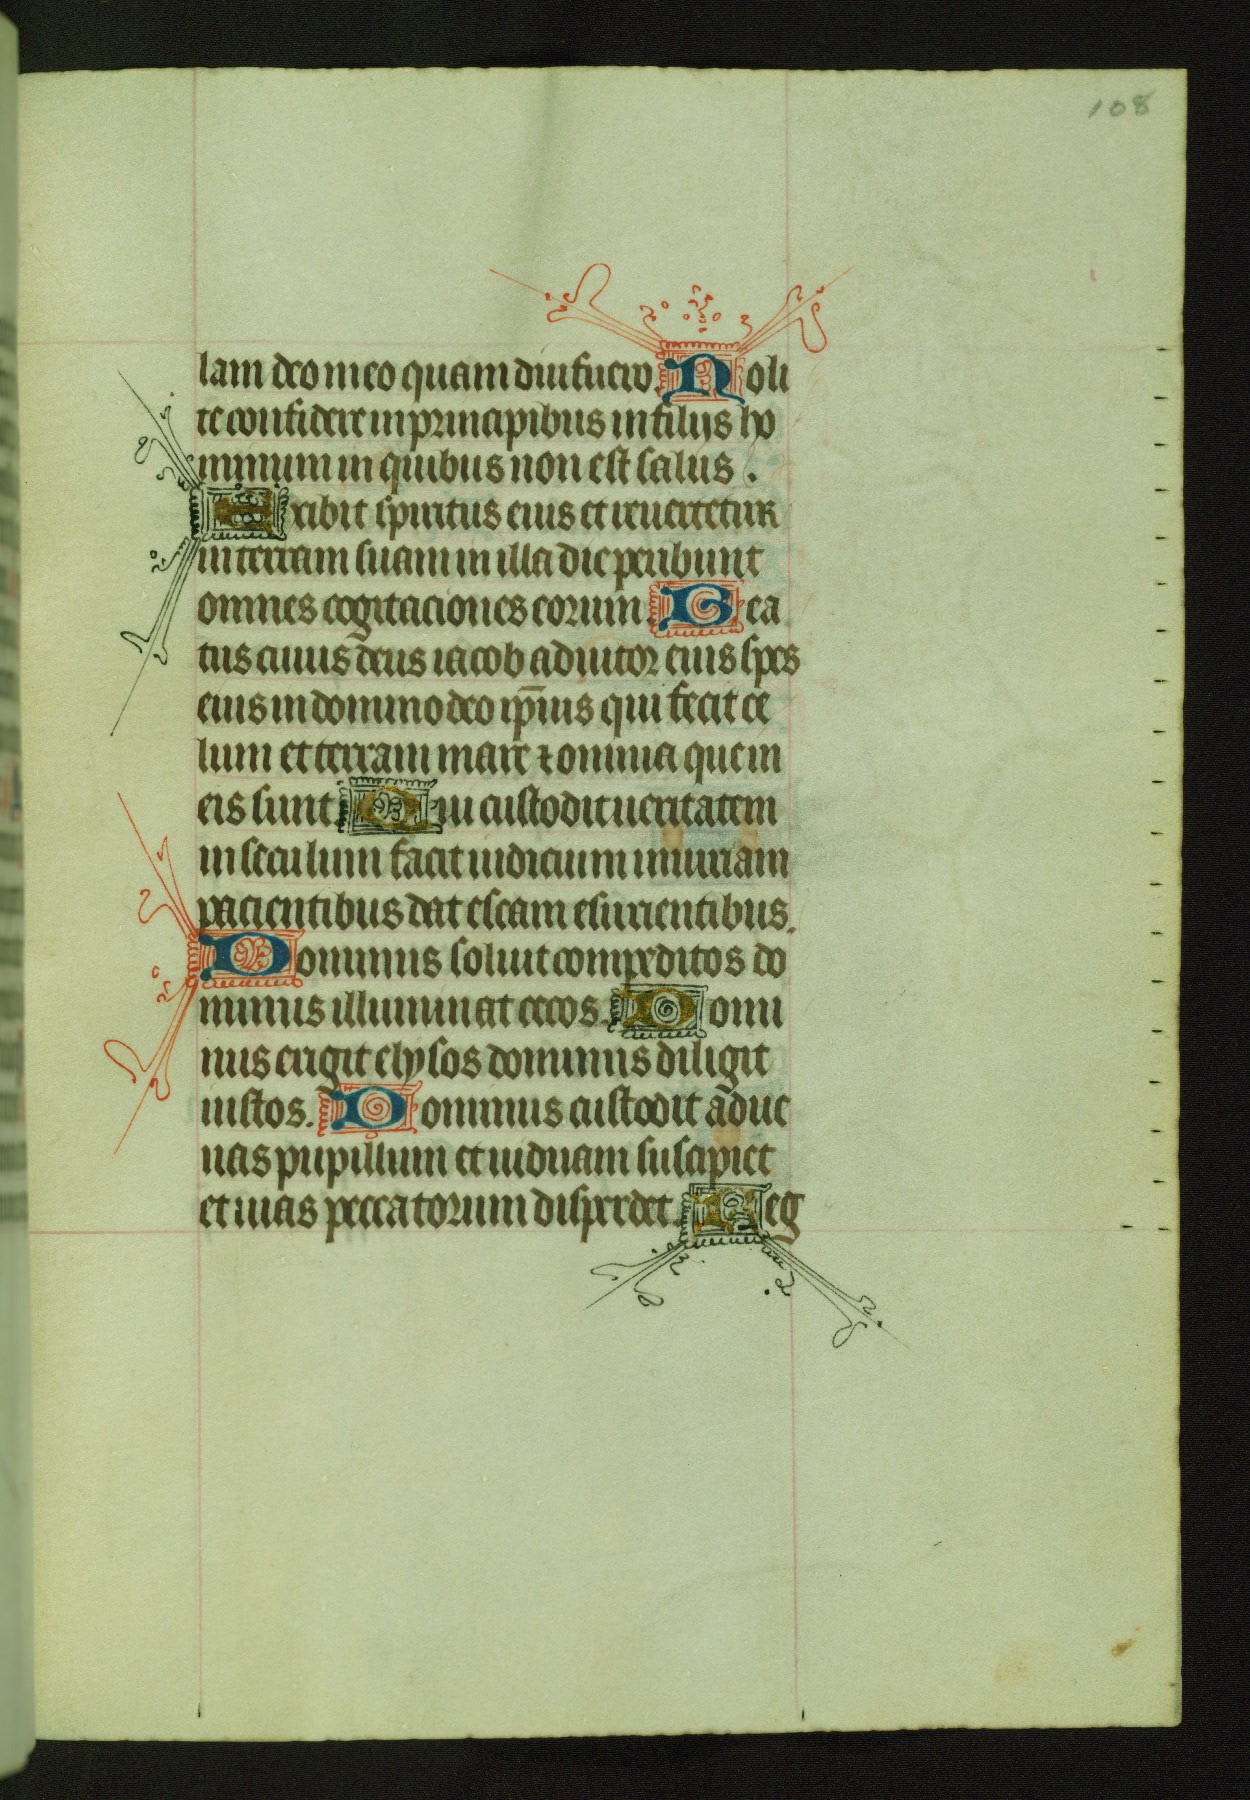 108
lam deo meo quam diu fuero. Noli
te confidere in principibus in filijs ho
minum in quibus non est salus.
Exibit spiritus eius et reuertetur
in terram suam in illa die peribunt
omnes cogitaciones eorum. Bea
tus cuius deus iacob adiutor eius spes
eius in domino deo ip̅ius qui fecit ce
lum et terram mare ⁊ omnia que in
eis sunt. Qui custodit ueritatem
in seculum facit iudicium iniuriam
pacientibus dat escam esurientibus.
Dominus soluit compeditos do
minus illuminat cecos. Domi
nus erigit elysos dominus diligit
iustos. Dominus custodit adue
nas pupillum et uiduam suscipiet
et uias peccatorum disperdet. Reg